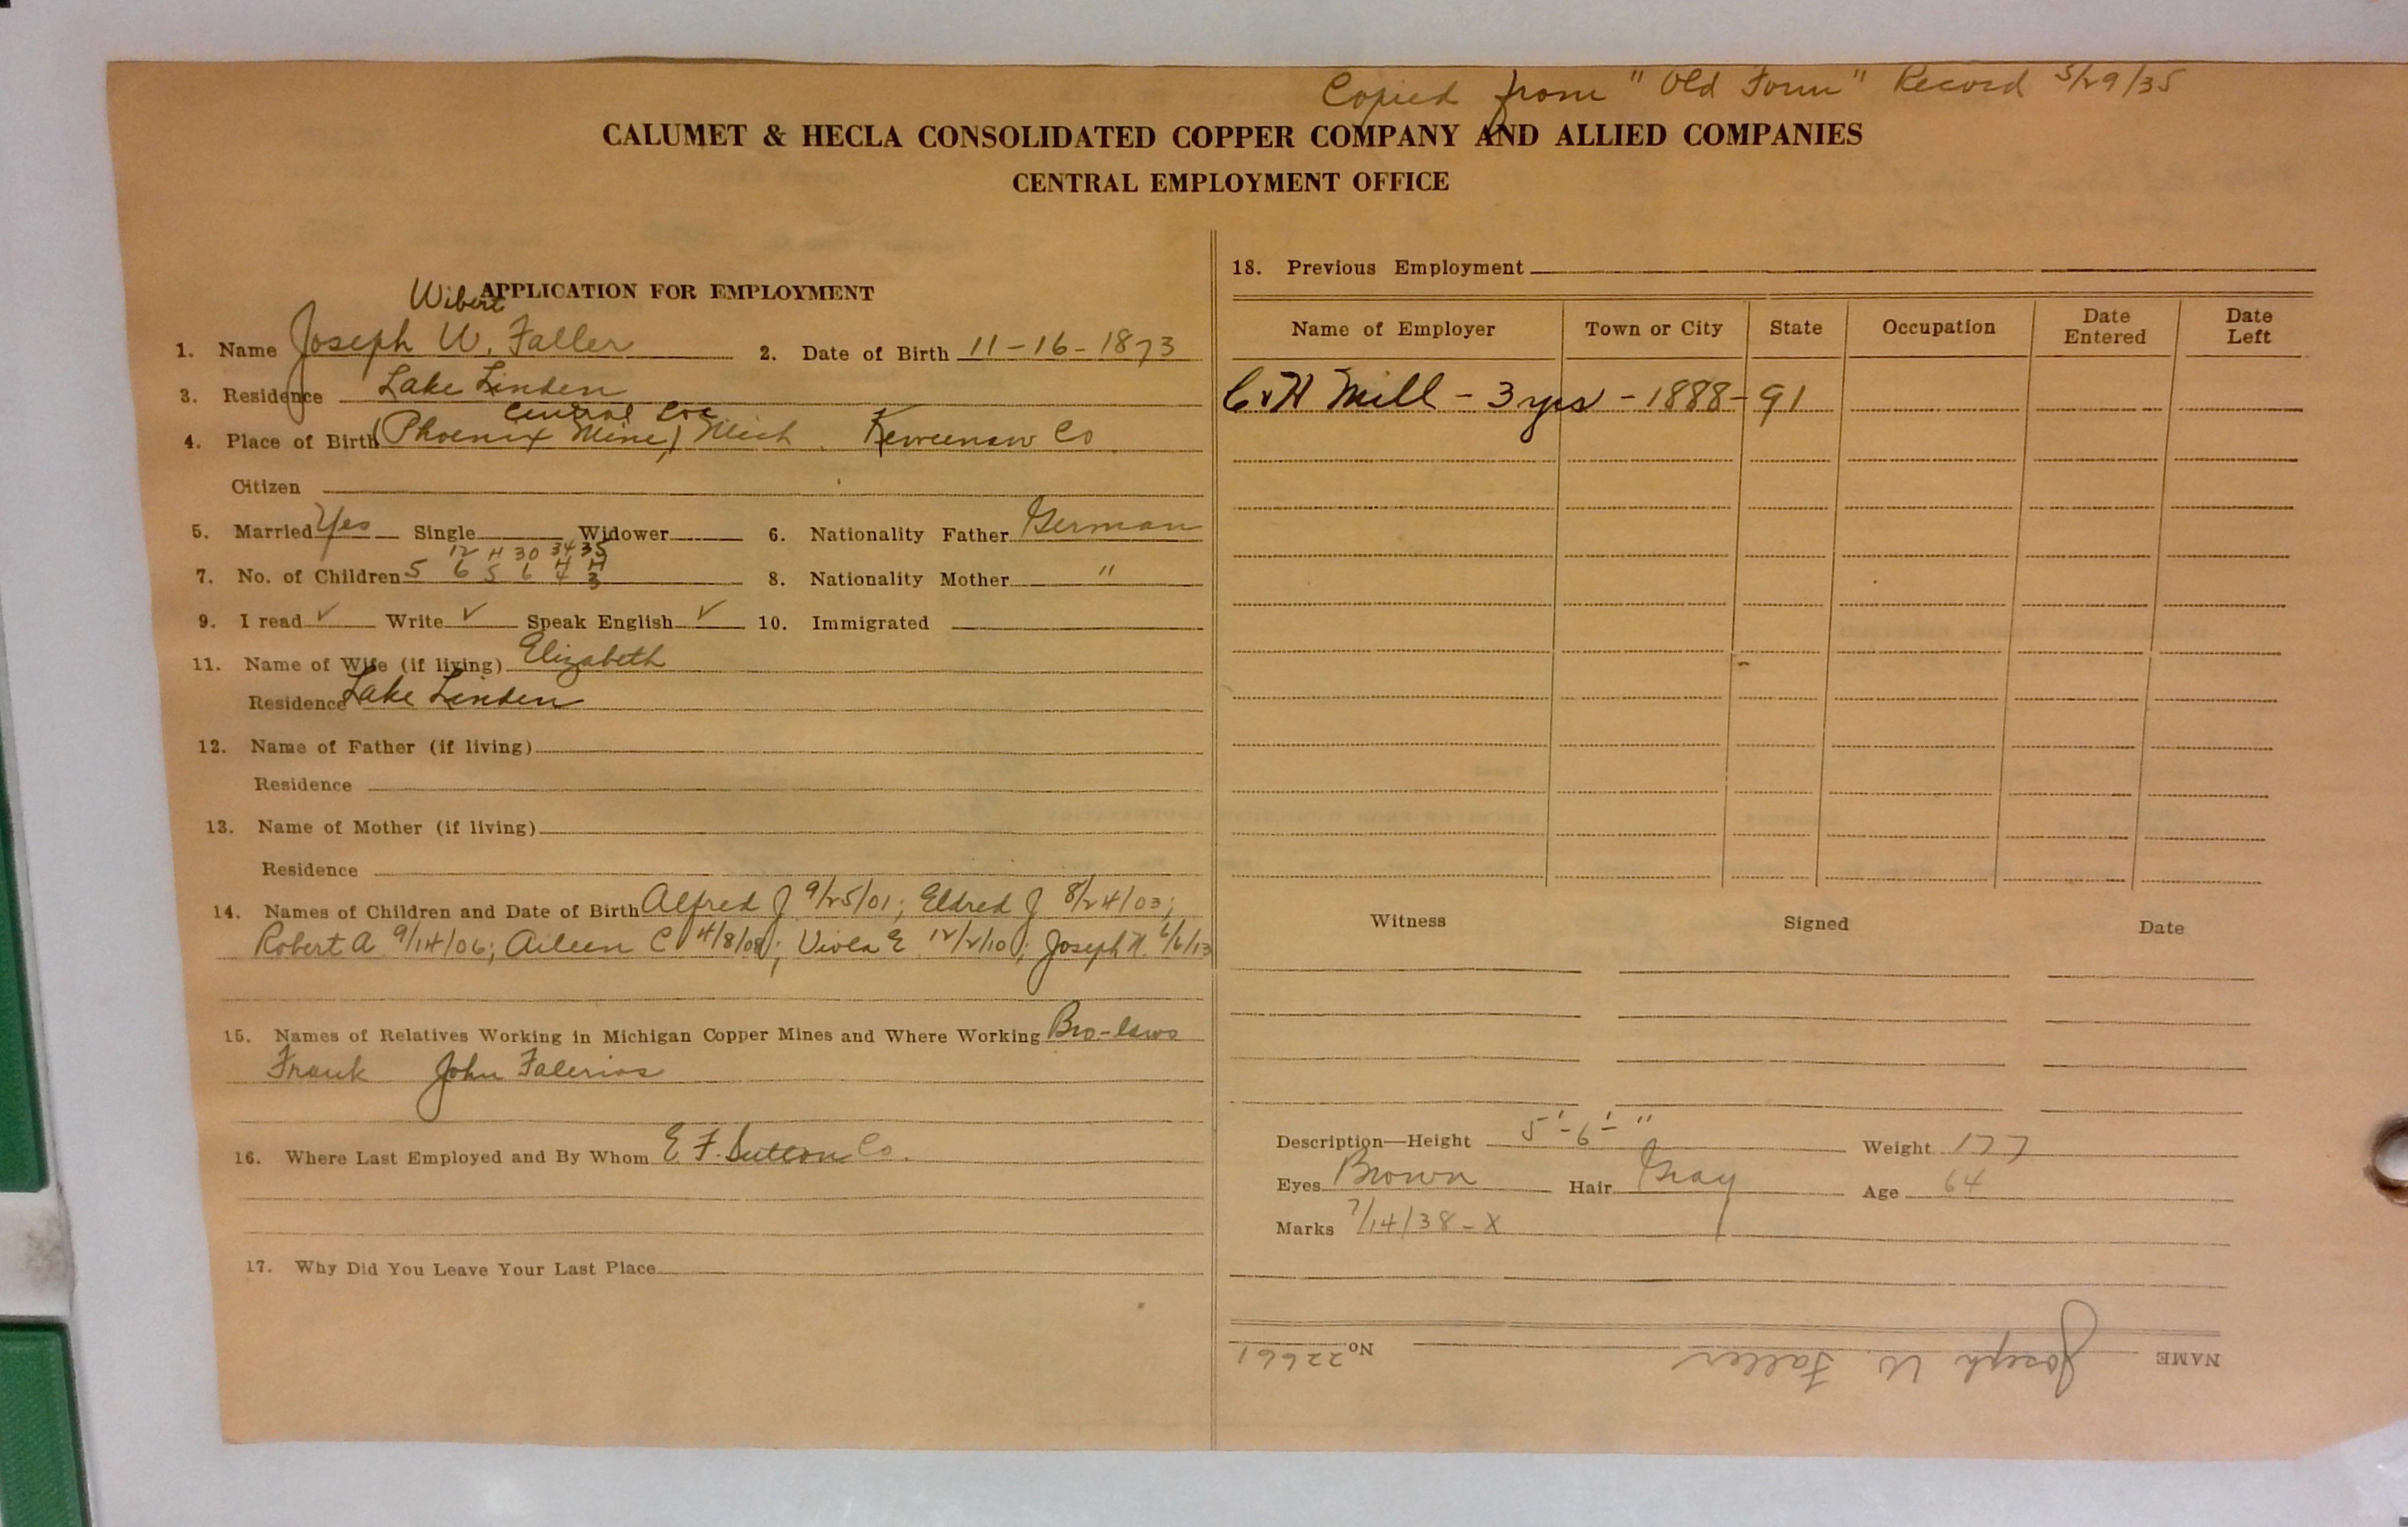 Copied from "Old Form" Record 5/29/35
CALUMET & HECLA CONSOLIDATED COPPER COMPANY AND ALLIED COMPANIES
CENTRAL EMPLOYMENT OFFICE
APPLICATION FOR EMPLOYMENT
Wibert
1. Name Joseph W. Faller 2. Date of Birth 11-16-1873
3. Residence Lake Linden
Central Loc
4. Place of Birth (Phoenix Mine) Mich. Keweenaw Co
Citizen
5. Married Yes Single Widower 6. Nationality Father German
12 H 30 34 35
7. No. of Children 5 6 5 6 4 3 8. Nationality Mother "
9. I read ✓ Write ✓ Speak English ✓ 10. Immigrated
11. Name of Wife (if living) Elizabeth
Residence Lake Linden
12. Name of Father (if living)
Residence
13. Name of Mother (if living)
Residence
14. Names of Children and Date of Birth Alfred J 9/25/01; Eldred J 8/24/03;
Robert A 9/14/06; Aileen C 4/8/08; Viola E 12/2/10; Joseph H. 6/6/13
15. Names of Relatives Working in Michigan Copper Mines and Where Working Bro-laws
Frank John Falerios
16. Where Last Employed and By Whom E. F. Sutton Co.
17. Why Did You Leave Your Last Place
18. Previous Employment
Name of Employer Town or City State Occupation Date Entered Date Left
C & H Mill - 3 yrs - 1888-91
Witness Signed Date
Description—Height 5'-6-" Weight 177
Eyes Brown Hair Gray Age 64
Marks 7/14/38-X
NAME Joseph W Faller No 22661